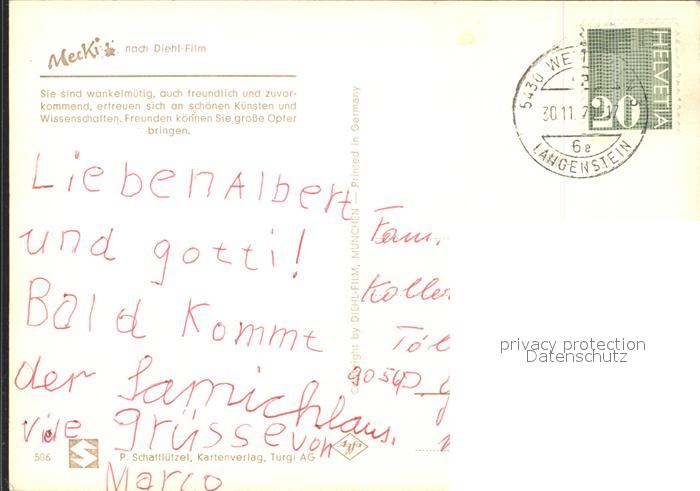 Mecki nach Diehl-Film
Sie sind wankelmütig, auch freundlich und zuvor-
kommend, erfreuen sich an schönen Künsten und
Wissenschaften. Freunden können Sie große Opfer
bringen.
Lieben Albert
und gotti!
Bald kommt
der Samichlaus.
vile grüsse von
Marco
506 P. Schafflützel, Kartenverlag, Turgi AG
Copyright by DIEHL-FILM, MÜNCHEN — Printed in Germany
5430 WE
30.11.7
6e
LANGENSTEIN
HELVETIA
20
Fam.
Koller
privacy protection
Datenschutz